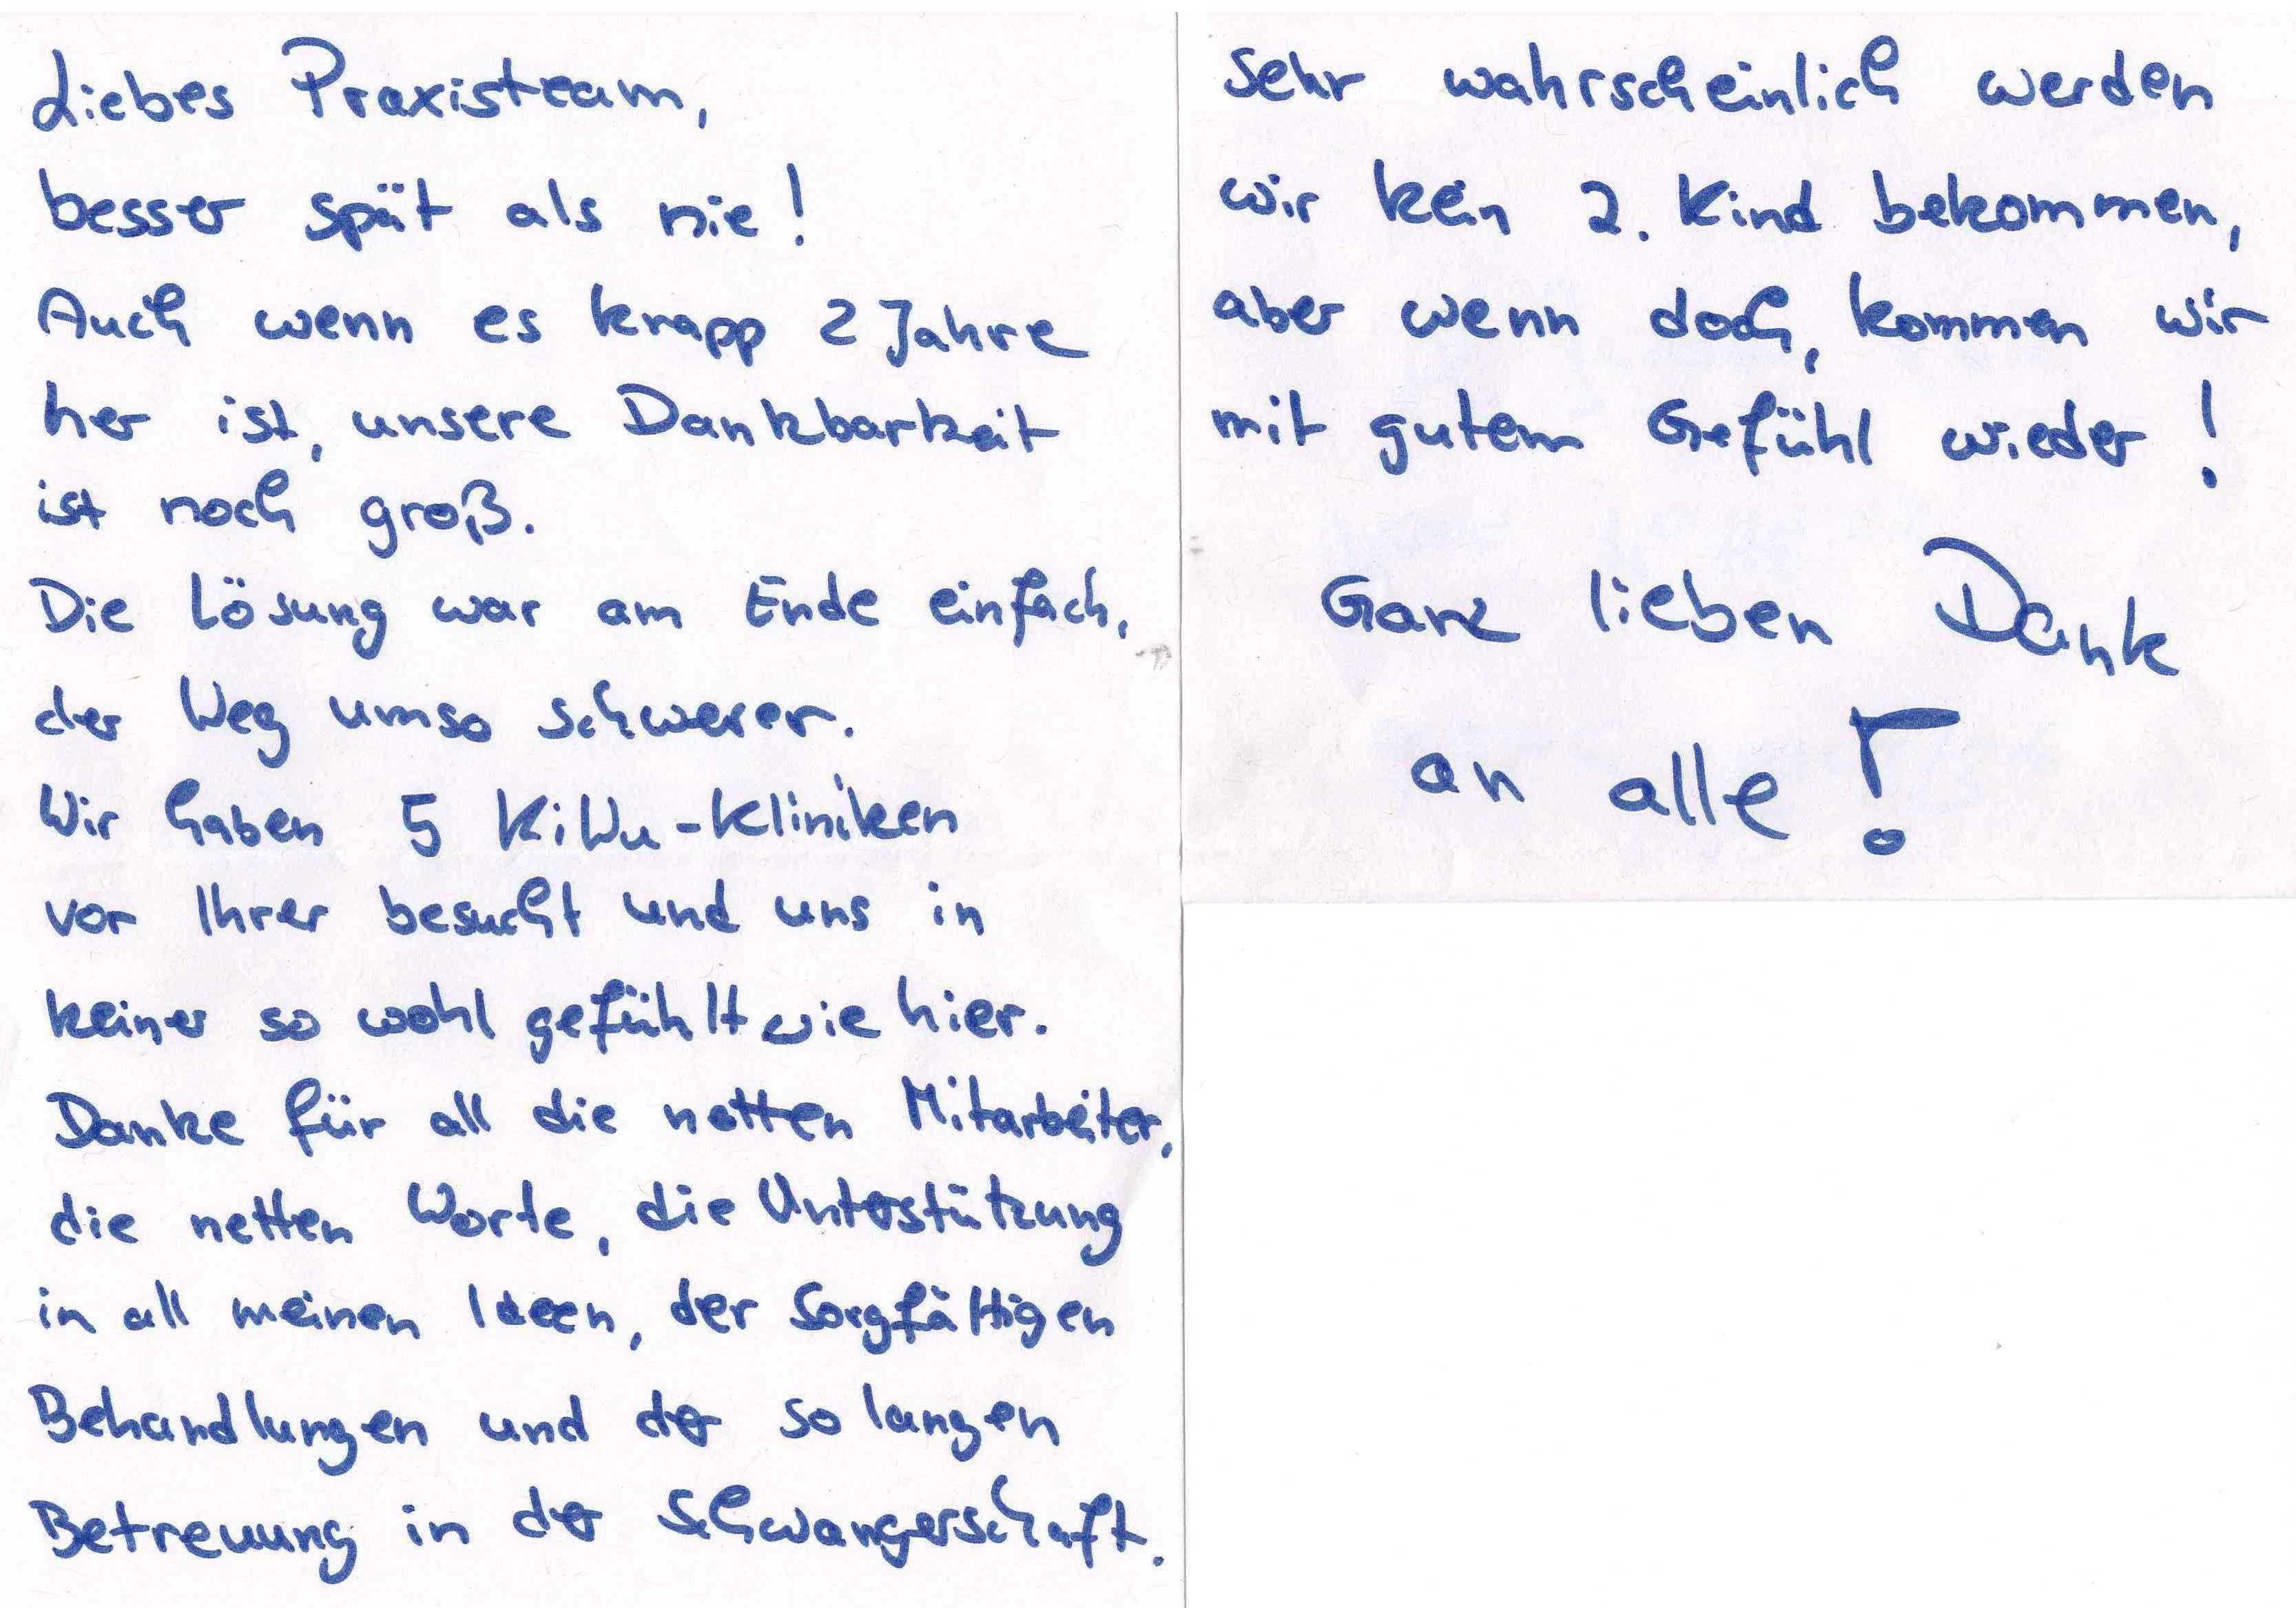 Liebes Praxisteam,
besser spät als nie!
Auch wenn es knapp 2 Jahre
her ist, unsere Dankbarkeit
ist noch groß.
Die Lösung war am Ende einfach,
der Weg umso schwerer.
Wir haben 5 KiWu-Kliniken
vor Ihrer besucht und uns in
keiner so wohl gefühlt wie hier.
Danke für all die netten Mitarbeiter,
die netten Worte, die Unterstützung
in all meinen Ideen, der sorgfältigen
Behandlungen und der so langen
Betreuung in der Schwangerschaft.
Sehr wahrscheinlich werden
wir kein 2. Kind bekommen,
aber wenn doch, kommen wir
mit gutem Gefühl wieder!
Ganz lieben Dank
an alle!